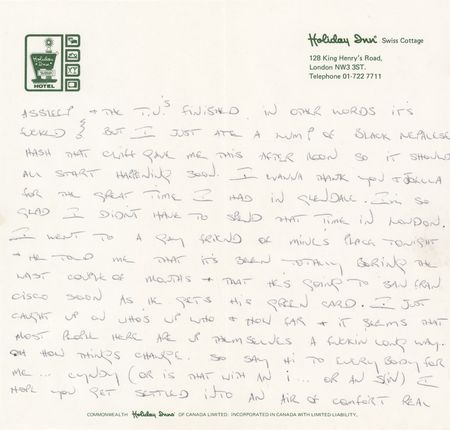 Holiday Inn
HOTEL
Holiday Inn Swiss Cottage
128 King Henry's Road,
London NW3 3ST.
Telephone 01-722 7711
ASSLEEP + THE T.V.'S FINISHED. IN OTHER WORDS IT'S
FUCKED & BUT I JUST ATE A LUMP OF BLACK NEPALESE
HASH THAT CLIFF GAVE ME THIS AFTER NOON SO IT SHOULD
ALL START HAPPENING SOON. I WANNA THANK YOU +
FOR THE GREAT TIME I HAD IN GLENDALE. I'M SO
GLAD I DIDN'T HAVE TO SPEND THAT TIME IN LONDON.
I WENT TO A GAY FRIEND OF MINE'S PLACE TONIGHT
+ HE TOLD ME THAT IT'S BEEN TOTALLY BORING THE
LAST COUPLE OF MONTHS + THAT HE'S GOING TO SAN FRAN
CISCO SOON AS HE GETS HIS GREEN CARD. I JUST
CAUGHT UP ON WHO'S UP WHO + HOW FAR + IT SEEMS THAT
MOST PEOPLE HERE ARE UP THEMSELVES A FUCKIN LONG WAY.
OH HOW THINGS CHANGE. SO SAY HI TO EVERYBODY FOR
ME ... LYNDY (OR IS THAT WITH AN I ... OR AN S/N) I
HOPE YOU GET SETTLED INTO AN AIR OF COMFORT REAL
COMMONWEALTH Holiday Inns OF CANADA LIMITED: INCORPORATED IN CANADA WITH LIMITED LIABILITY.